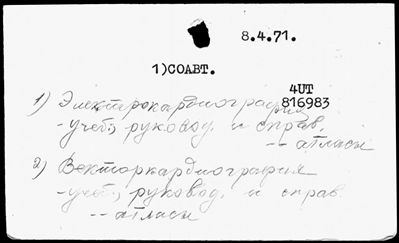 8.4.71.
1)СОАВТ.
4UT
816983
1) Электрокардиография
- учеб., руковод. и справ.
-- атласы
2) Векторкардиография
- учеб., руковод. и справ.
-- атласы